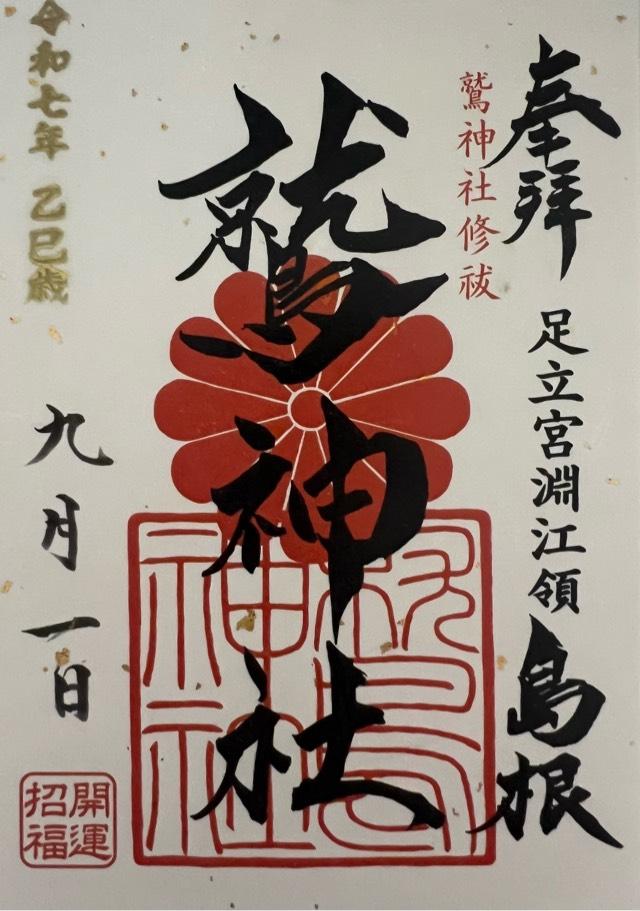 奉拝
足立宮淵江領
島根
鷲神社修祓
鷲神社
鷲神社
令和七年 乙巳歳
九月一日
開運
招福